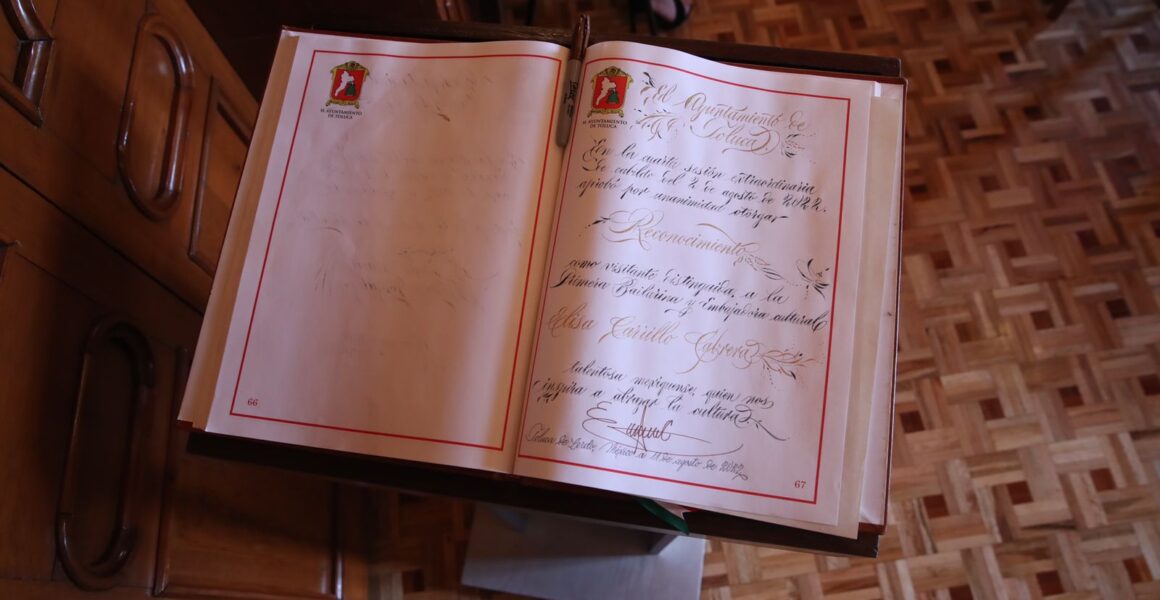 H. AYUNTAMIENTO
DE TOLUCA
66
H. AYUNTAMIENTO
DE TOLUCA
El Ayuntamiento de
Toluca
En la cuarta sesión extraordinaria
de cabildo del 2 de agosto de 2022.
aprobó por unanimidad otorgar
Reconocimiento
como visitante distinguida, a la
Primera Bailarina y Embajadora cultural
Elisa Carrillo Cabrera
talentosa mexiquense, quien nos
inspira a abrazar la cultura.
Toluca de Lerdo, México a 11 de agosto de 2022
67